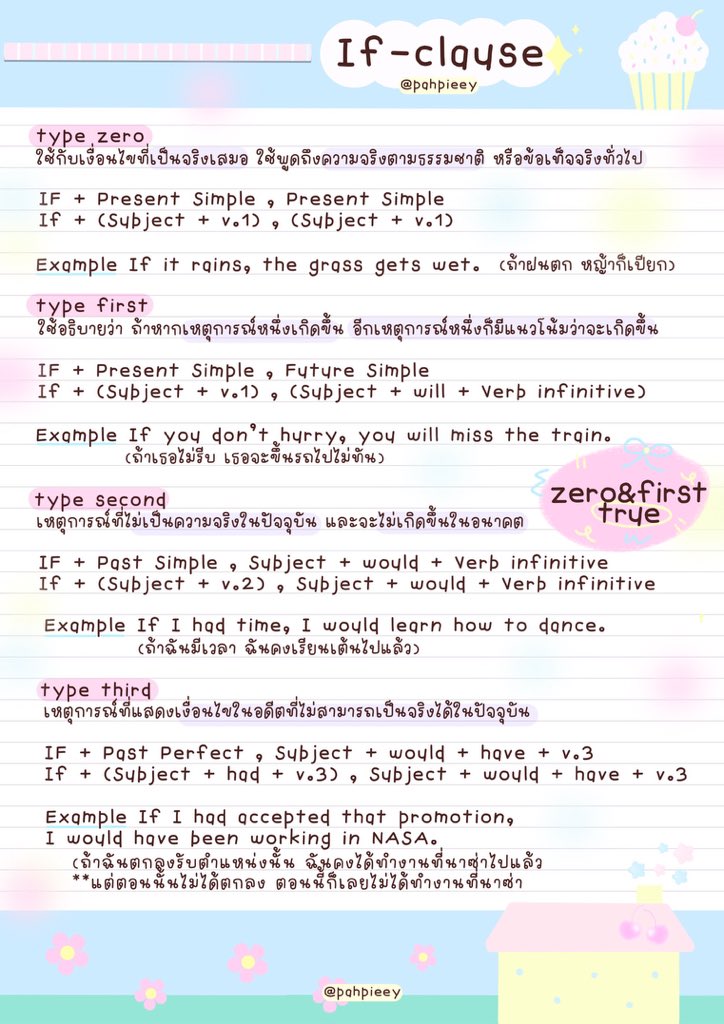 If-clause
@pahpieey
type zero
ใช้กับเงื่อนไขที่เป็นจริงเสมอ ใช้พูดถึงความจริงตามธรรมชาติ หรือข้อเท็จจริงทั่วไป
IF + Present Simple , Present Simple
If + (Subject + v.1) , (Subject + v.1)
Example If it rains, the grass gets wet. (ถ้าฝนตก หญ้าก็เปียก)
type first
ใช้อธิบายว่า ถ้าหากเหตุการณ์หนึ่งเกิดขึ้น อีกเหตุการณ์หนึ่งก็มีแนวโน้มว่าจะเกิดขึ้น
IF + Present Simple , Future Simple
If + (Subject + v.1) , (Subject + will + Verb infinitive)
Example If you don't hurry, you will miss the train.
(ถ้าเธอไม่รีบ เธอจะขึ้นรถไปไม่ทัน)
zero&first
true
type second
เหตุการณ์ที่ไม่เป็นความจริงในปัจจุบัน และจะไม่เกิดขึ้นในอนาคต
IF + Past Simple , Subject + would + Verb infinitive
If + (Subject + v.2) , Subject + would + Verb infinitive
Example If I had time, I would learn how to dance.
(ถ้าฉันมีเวลา ฉันคงเรียนเต้นไปแล้ว)
type third
เหตุการณ์ที่แสดงเงื่อนไขในอดีตที่ไม่สามารถเป็นจริงได้ในปัจจุบัน
IF + Past Perfect , Subject + would + have + v.3
If + (Subject + had + v.3) , Subject + would + have + v.3
Example If I had accepted that promotion,
I would have been working in NASA.
(ถ้าฉันตกลงรับตำแหน่งนั้น ฉันคงได้ทำงานที่นาซ่าไปแล้ว
**แต่ตอนนั้นไม่ได้ตกลง ตอนนี้ก็เลยไม่ได้ทำงานที่นาซ่า
@pahpieey